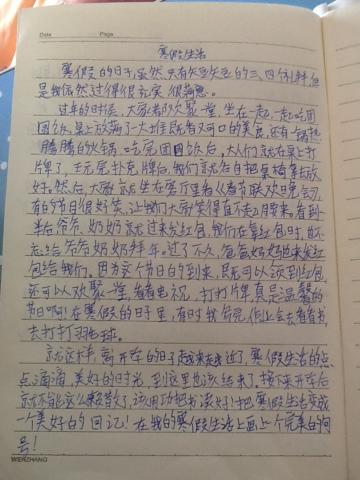 Date Page
寒假生活
寒假的日子虽然只有短短的三、四个礼拜,但
是我依然过得很充实,很满意。
过年的时候,大家都欢聚一堂,坐在一起,一起吃团
圆饭,桌上放满了大堆既香又可口的美食,还有一锅热
腾腾的火锅。吃完团圆饭后,大人们就在桌上打
牌了,玩完扑克牌后,我们就各自把桌椅摆放
好。然后,大家就坐在客厅里看《春节联欢晚会》,
有的节目很好笑,让我们大家笑得直不起腰来。看到
半后爷爷、奶奶就过来发红包,我们在拿红包时,也不
忘给爷爷奶奶拜年。过了不久,爸爸妈妈也来发红
包给我们。因为这个节日的到来,既可以领到红包,
还可以欢聚一堂,看看电视,打打牌真是温馨的
节日啊!在寒假的日子里,有时我写完作业会去看看书,
去打打羽毛球。
就这样,离开学的日子越来越近了,寒假生活的点
点滴滴,美好的时光,到这里也该结束了。接下来开学后
就不能这么懒散了,该用功把书读好!把寒假生活变成
一个美好的回记!在我的寒假生活上画上一个完美的句
号!
WENZHANG